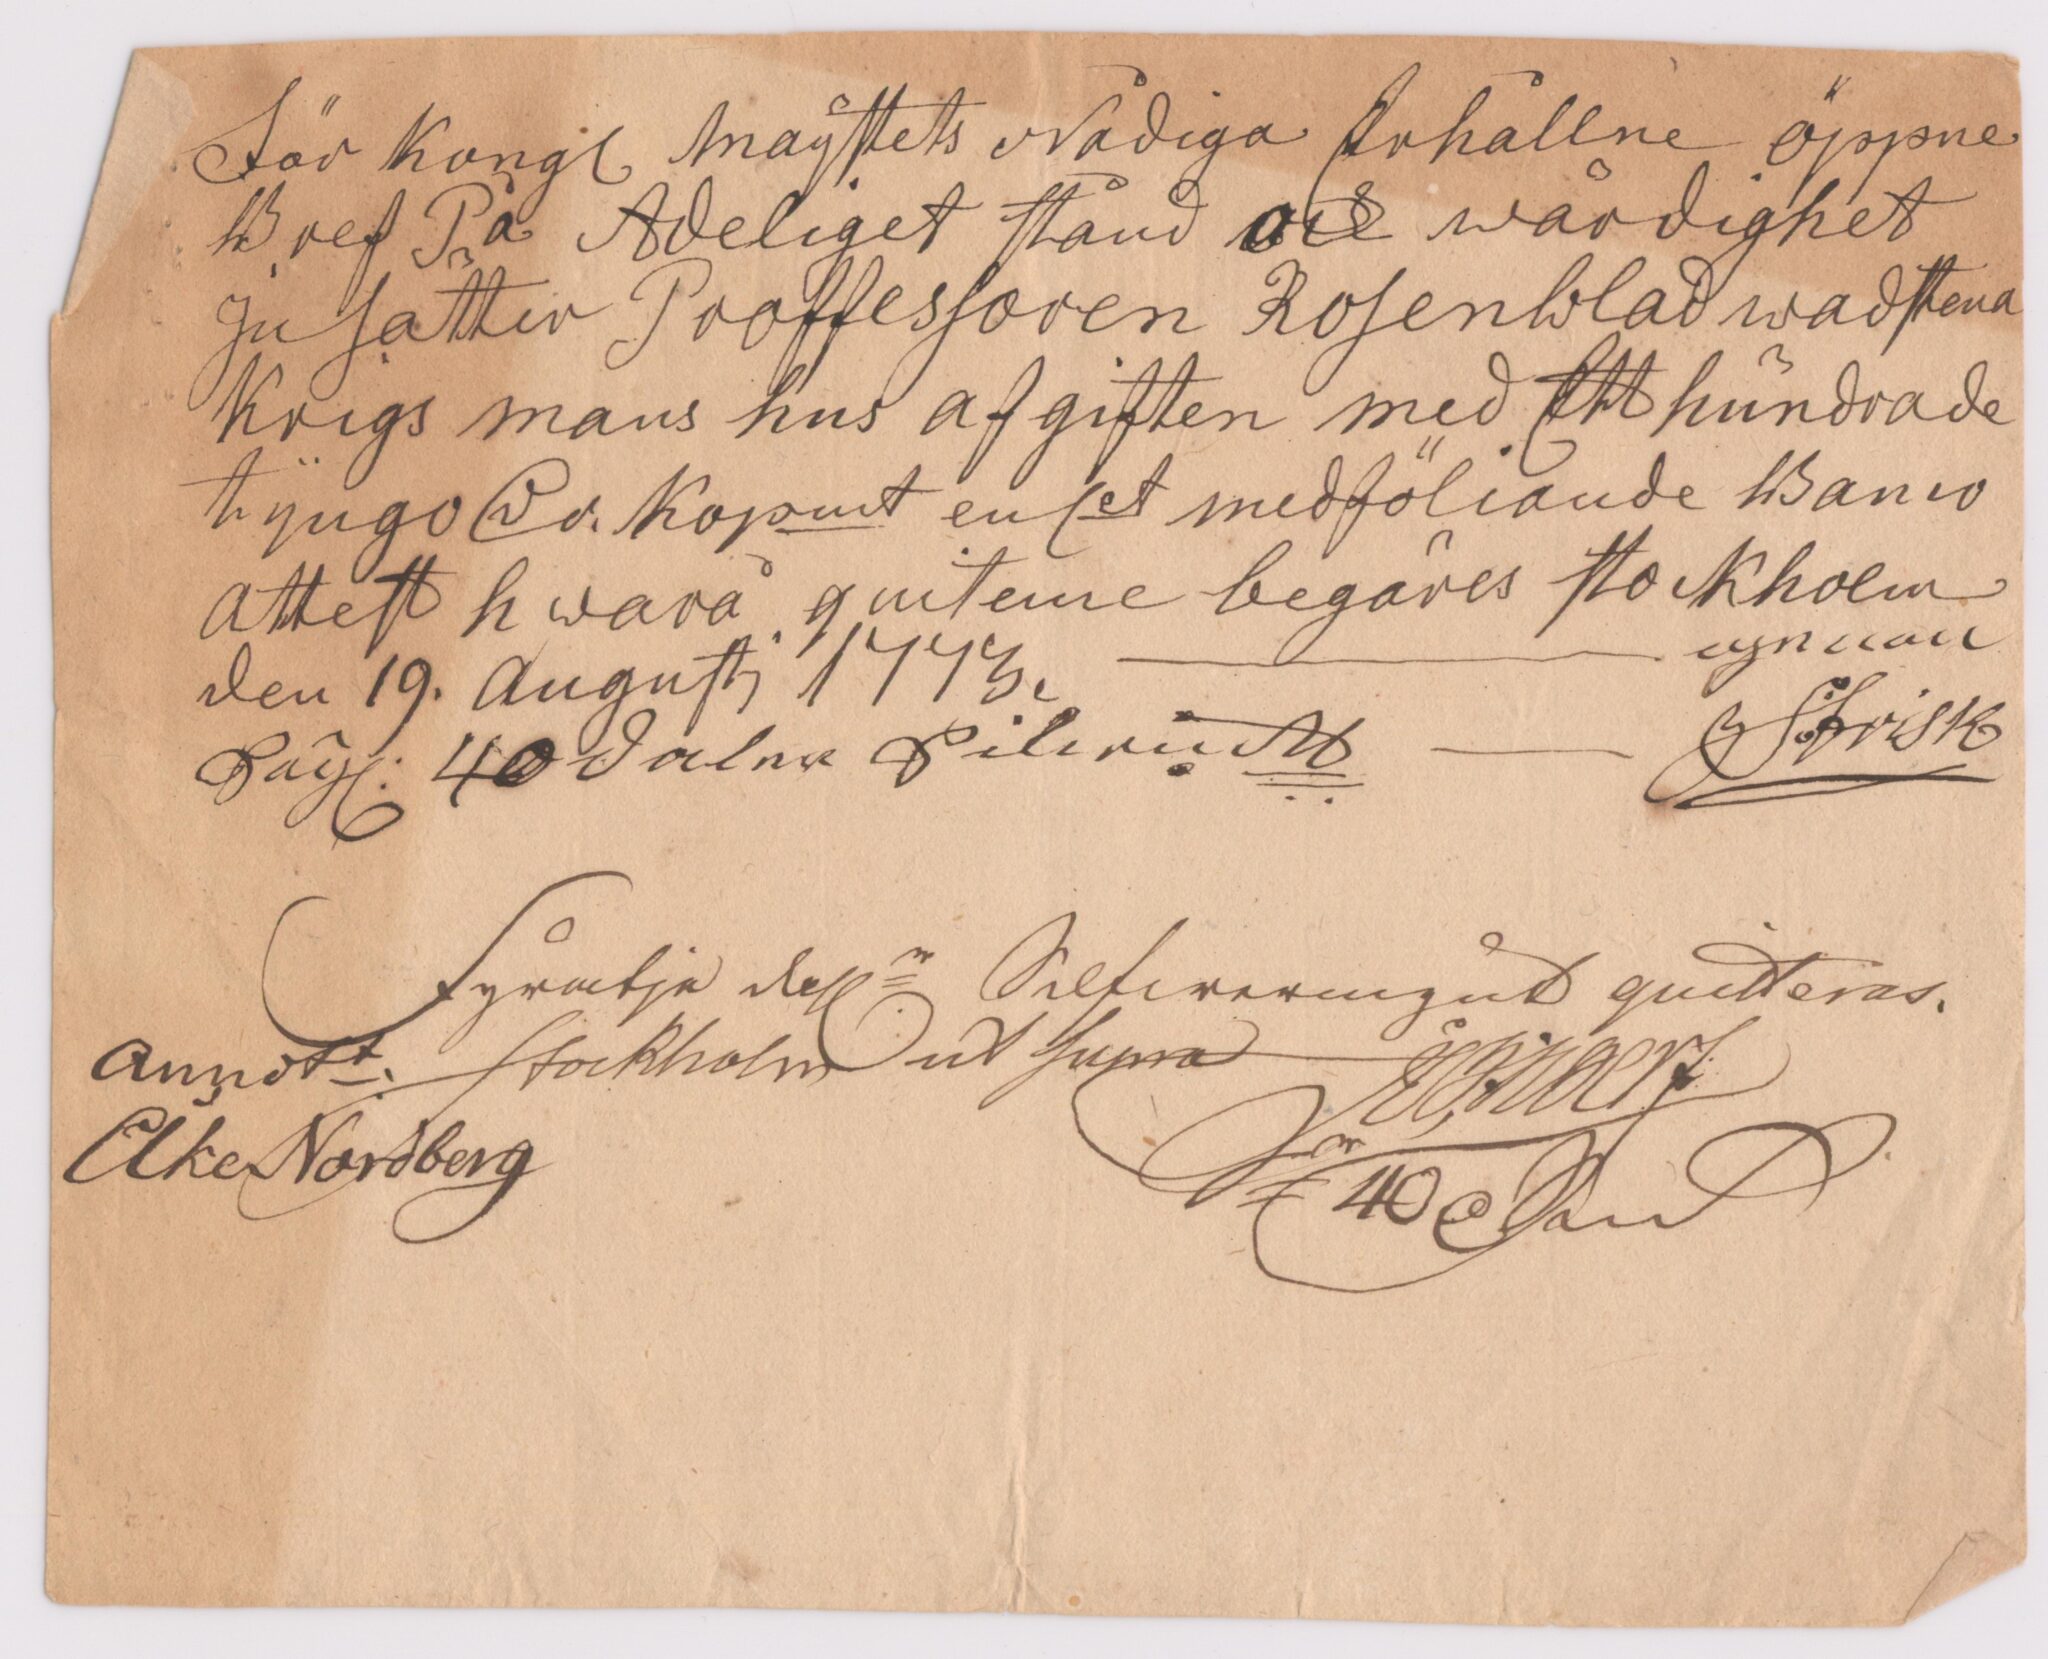 För Kongl Maÿstets Nådiga Erhållne öppne
Bref På Adeliget stånd och wärdighet
Jnsätter Proffessoren Rosenblad wadstena
Krigs mans hus afgiften med Ett hundrade
tjugo Dr. Kopmt enl et medföliande Banco
attest hwarå quitence begäres Stockholm
den 19. Augusti 1773.
Säg: 40 daler Silwermt Frisk
Fyratijo dalr Silfwermynt quitteras.
Annott. Stockholm ut supra
Elke Nordberg 40 d Smt